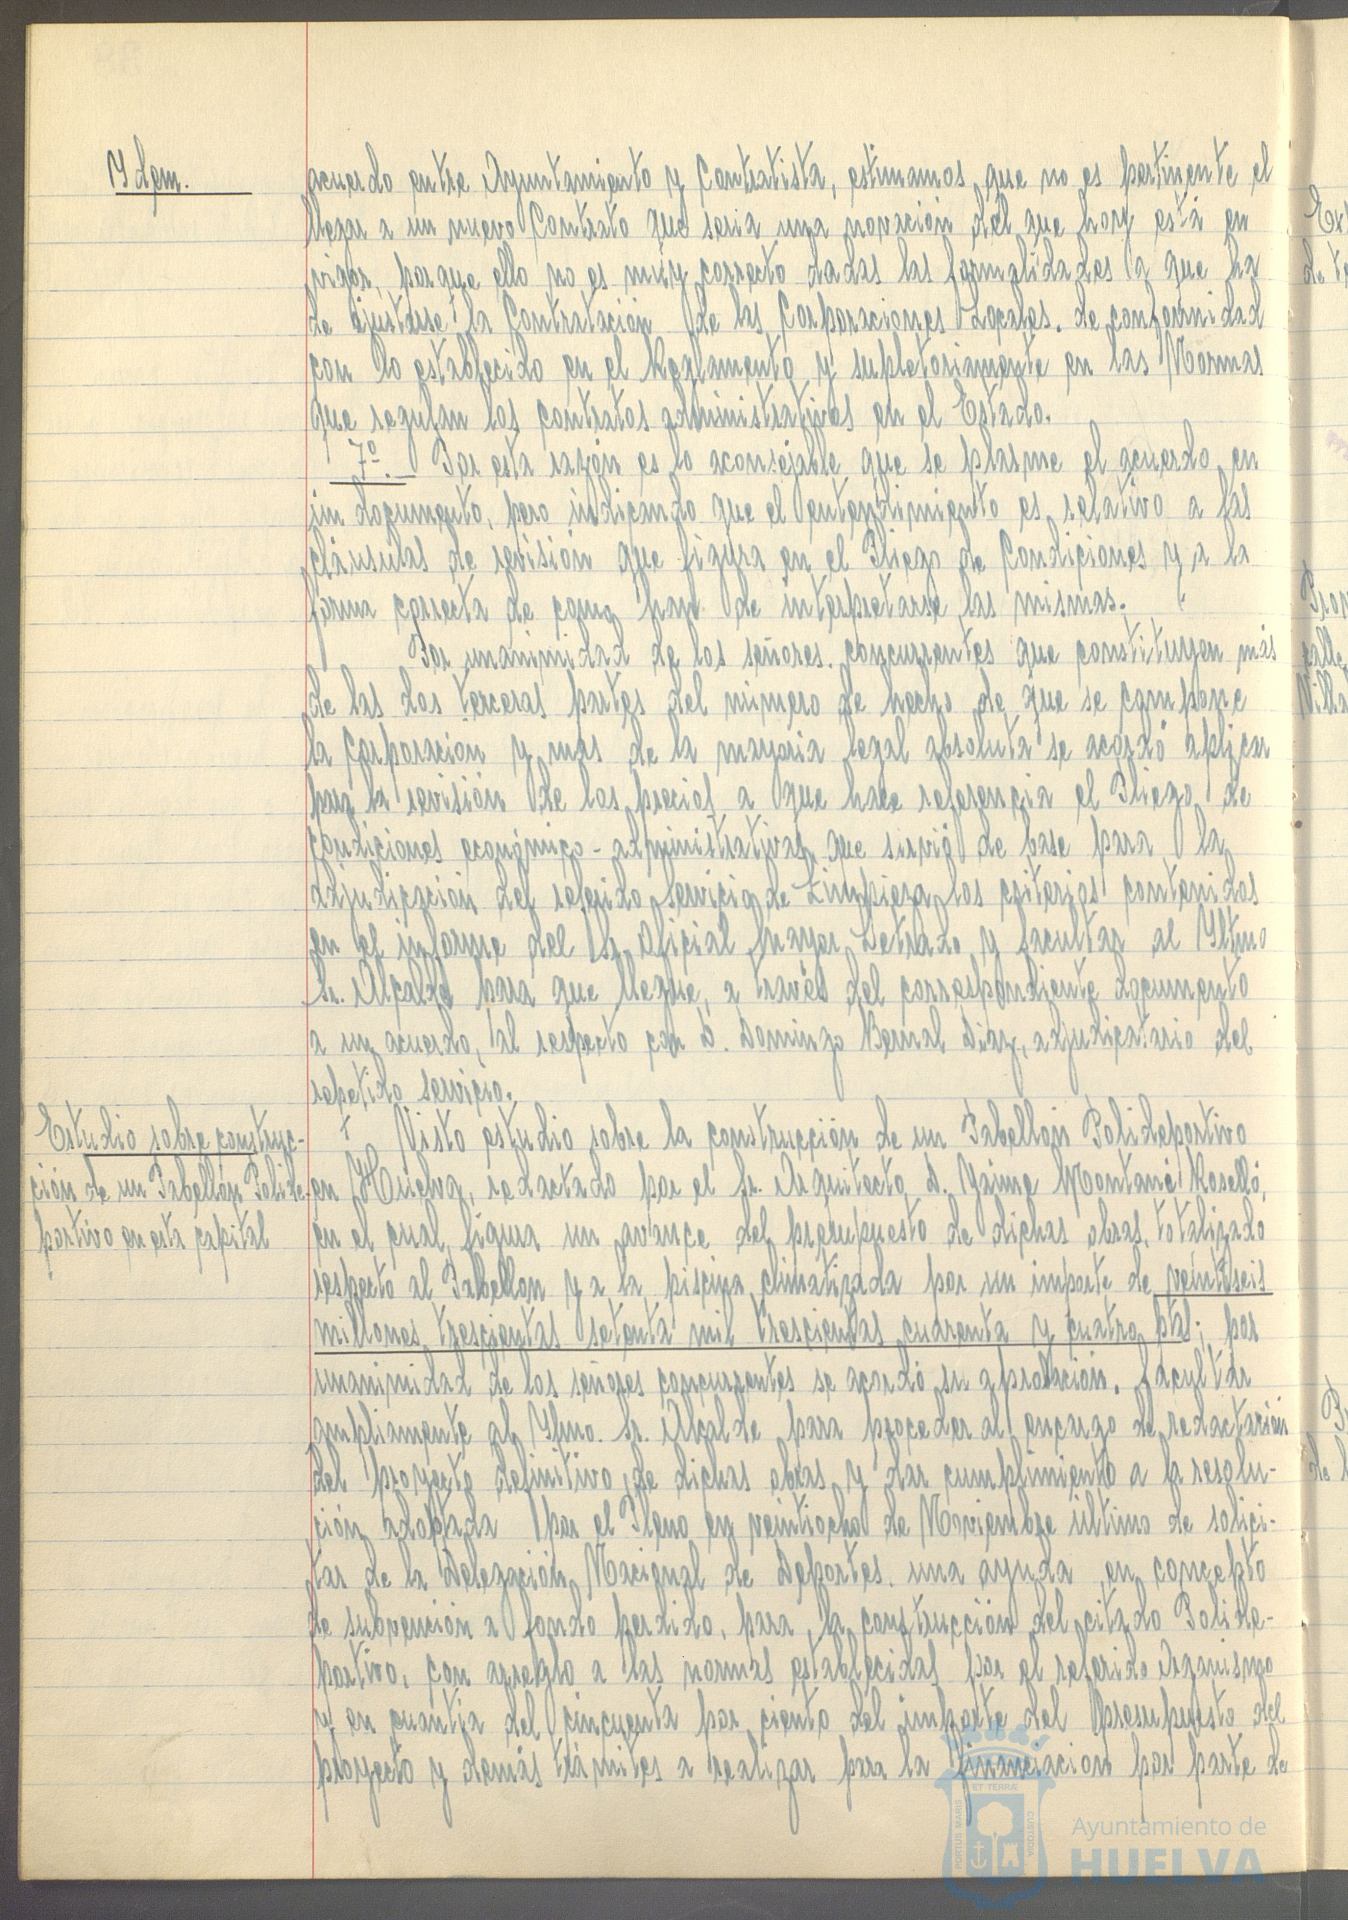 Ydem.
acuerdo entre Ayuntamiento y Contratista, estimamos que no es pertinente el
llegar a un nuevo Contrato que seria una novación del que hoy está en
vigor, porque ello no es muy correcto dadas las formalidades a que ha
de ajustarse la Contratación de las Corporaciones Locales. de conformidad
con lo establecido en el Reglamento y supletoriamente en las Normas
que regulan los contratos administrativos en el Estado.
7º.- Por esta razón es lo aconsejable que se plasme el acuerdo en
un documento, pero indicando que el entendimiento es relativo a las
cláusulas de revisión que figura en el Pliego de Condiciones y a la
forma correcta de como han de interpretarse las mismas.
Por unanimidad de los señores concurrentes que constituyen más
de las dos terceras partes del número de hecho de que se compone
la Corporación y más de la mayoria legal absoluta se acordó aplicar
para la revisión de los precios a que hace referencia el Pliego de
condiciones económico-administrativas que sirvió de base para la
adjudicación del referido Servicio de Limpieza los criterios contenidos
en el informe del Sr. Oficial Mayor Letrado y facultar al Yltmo
Sr. Alcalde para que llegue, a través del correspondiente documento
a un acuerdo, al respecto con D. Domingo Bernal Diaz, adjudicatario del
repetido servicio.
Estudio sobre construc-
ción de un Pabellón Polide-
portivo en esta capital
Visto estudio sobre la construcción de un Pabellón Polideportivo
en Huelva, redactado por el Sr. Arquitecto D. Yaime Montané Roselló,
en el cual figura un avance del presupuesto de dichas obras, totalizado
respecto al Pabellon y a la piscina climatizada por un importe de veintiseis
millones trescientas setenta mil trescientas cuarenta y cuatro ptas; por
unanimidad de los señores concurrentes se acordó su aprobación. Facultar
ampliamente al Yltmo. Sr. Alcalde para proceder al encargo de redactación
del proyecto definitivo de dichas obras y dar cumplimiento a la resolu-
ción adoptada por el Pleno en veintiocho de Noviembre último de solici-
tar de la Delegación Nacional de Deportes una ayuda en concepto
de subvención a fondo perdido, para la construcción del citado Polide-
portivo, con arreglo a las normas establecidas por el referido Organismo
y en cuantia del cincuenta por ciento del importe del Presupuesto del
proyecto y demás trámites a realizar para la financiacion por parte de
PORTUS MARIS
ET TERRAE
CUSTODIA
Ayuntamiento de
HUELVA